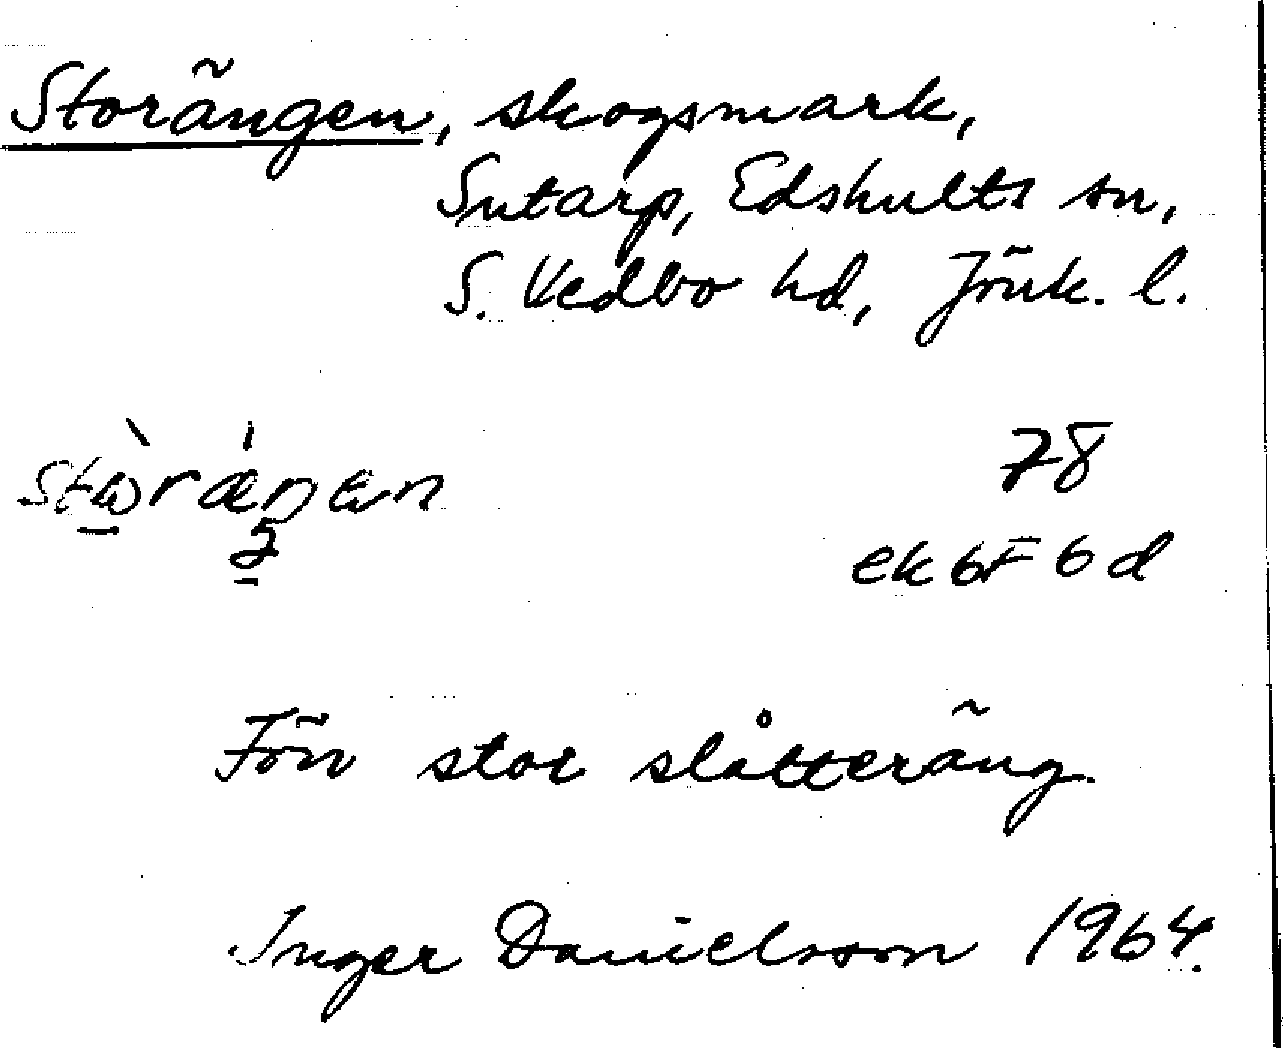 Storängen, skogsmark,
Sutarp, Edshults sn,
S. Vedbo hd, Jönk. l.
78
ek 6F 6d
Förr stor slåtteräng.
Inger Danielsson 1964.